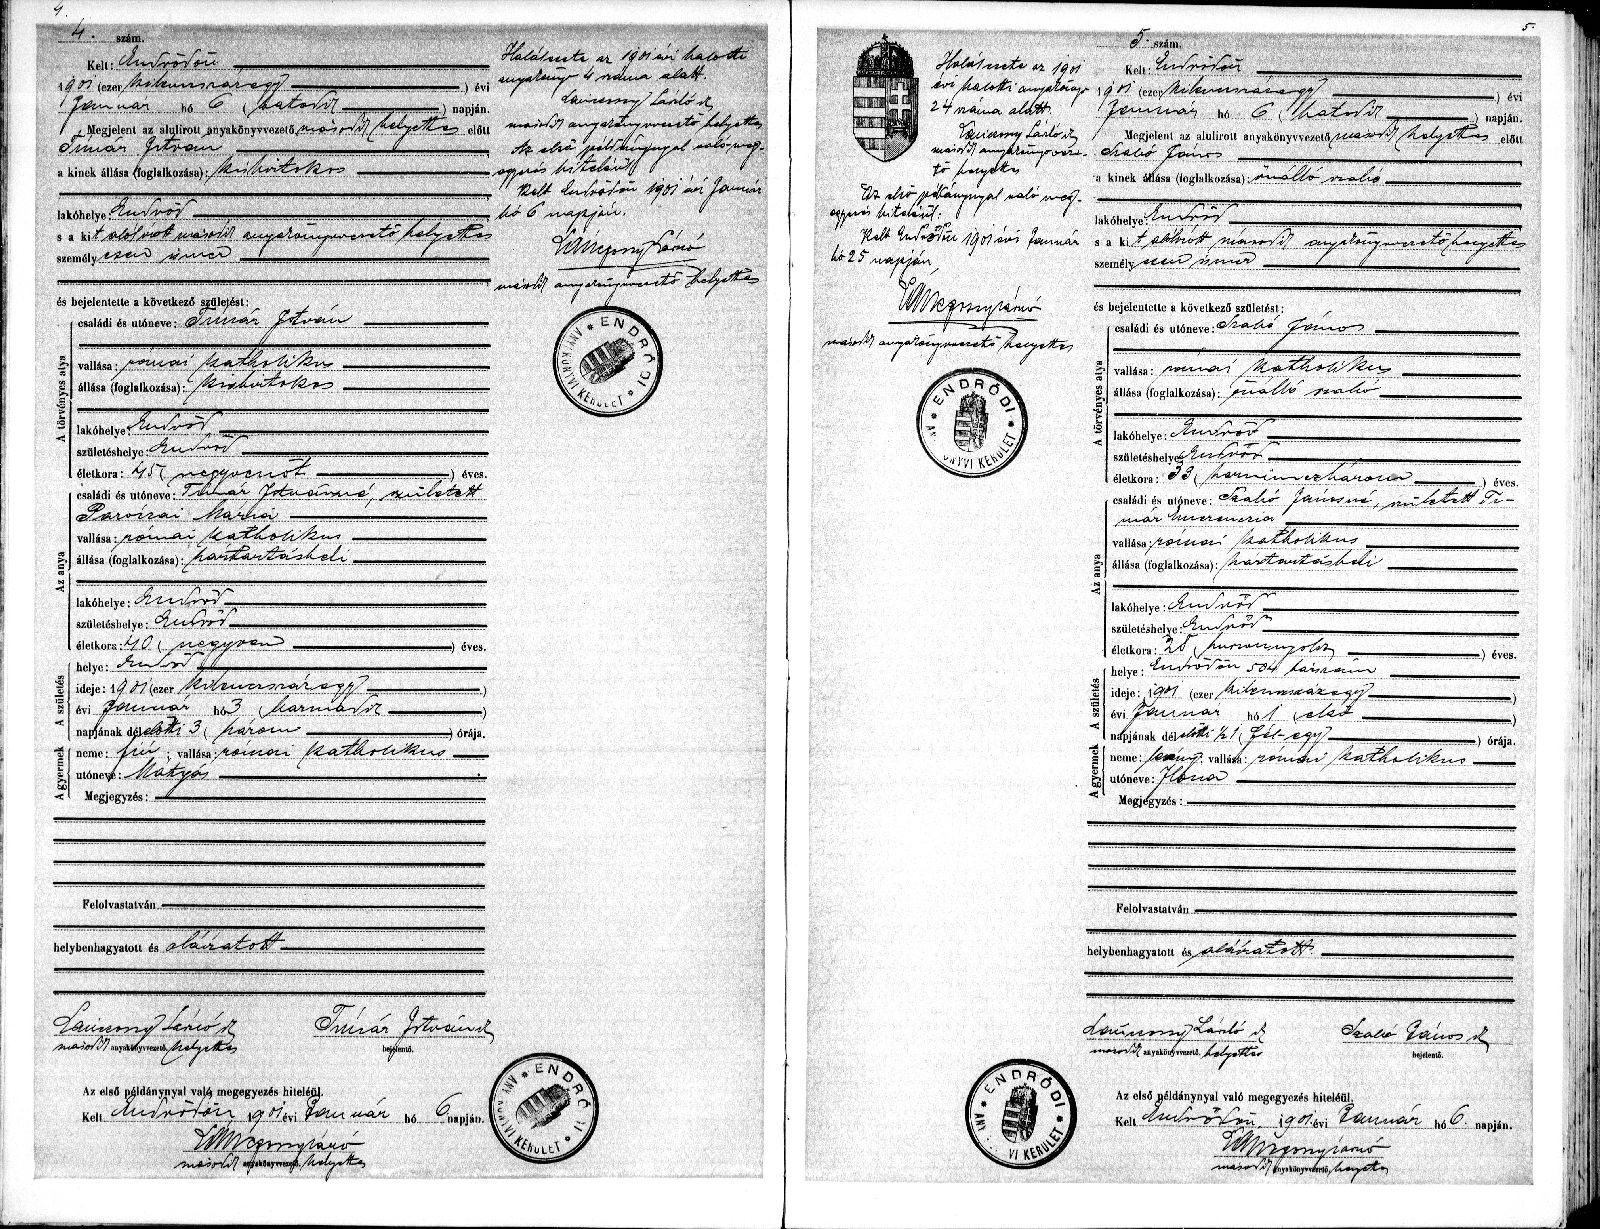 4.
4. szám.
Kelt: Endrődön
1901 (ezer kilenczszázegy) évi
Január hó 6 (hatodik) napján.
Megjelent az alulirott anyakönyvvezető második helyettes előtt
Timár István
a kinek állása (foglalkozása): kisbirtokos
lakóhelye: Endrőd
s a kit alolirott második anyakönyvvezető helyettes
személyesen ismer
és bejelentette a következő születést:
A törvényes atya
családi és utóneve: Timár István
vallása: római katholikus
állása (foglalkozása): kisbirtokos
lakóhelye: Endrőd
születéshelye: Endrőd
életkora: 45 (negyvenöt) éves.
Az anya
családi és utóneve: Timár Istvánné, született
Mária
vallása: római katholikus
állása (foglalkozása): háztartásbeli
lakóhelye: Endrőd
születéshelye: Endrőd
életkora: 40 (negyven) éves.
A születés
helye: Endrőd
ideje: 1901 (ezer kilenczszázegy)
évi Január hó 3 (harmadik)
napjának délelőtti 3 (három) órája.
A gyermek
neme: fiú; vallása: római katholikus
utóneve: Mátyás
Megjegyzés:
Felolvastatván,
helybenhagyatott és aláiratott
László sk
második anyakönyvvezető, helyettes
Timár István sk
bejelentő.
Az első példánynyal való megegyezés hiteléül.
Kelt Endrődön 1901 évi Január hó 6 napján.
második anyakönyvvezető, helyettes
Halálesete az 1901 évi halotti
anyakönyv 4 száma alatt.
László sk
második anyakönyvvezető helyettes
Az első példánynyal való meg-
egyezés hiteléül
Kelt Endrődön 1901 évi Január
hó 6 napján.
második anyakönyvvezető helyettes
ENDRŐDI ANYAKÖNYVI KERÜLET
ENDRŐDI ANYAKÖNYVI KERÜLET
5.
5. szám.
Kelt: Endrődön
1901 (ezer kilenczszázegy) évi
Január hó 6 (hatodik) napján.
Megjelent az alulirott anyakönyvvezető második helyettes előtt
Szabó János
a kinek állása (foglalkozása): önálló szabó
lakóhelye: Endrőd
s a kit alolirott második anyakönyvvezető helyettes
személyesen ismer
és bejelentette a következő születést:
A törvényes atya
családi és utóneve: Szabó János
vallása: római katholikus
állása (foglalkozása): önálló szabó
lakóhelye: Endrőd
születéshelye: Endrőd
életkora: 33 (harminczhárom) éves.
Az anya
családi és utóneve: Szabó Jánosné, született Ti-
már Emerenczia
vallása: római katholikus
állása (foglalkozása): háztartásbeli
lakóhelye: Endrőd
születéshelye: Endrőd
életkora: 28 (huszonnyolcz) éves.
A születés
helye: Endrődön 504 házszám
ideje: 1901 (ezer kilenczszázegy)
évi Január hó 1 (első)
napjának délelőtti ½1 (fél egy) órája.
A gyermek
neme: leány; vallása: római katholikus
utóneve: Ilona
Megjegyzés:
Felolvastatván
helybenhagyatott és aláiratott.
László sk
második anyakönyvvezető, helyettes
Szabó János sk
bejelentő.
Az első példánynyal való megegyezés hiteléül.
Kelt Endrődön, 1901 évi Január hó 6. napján.
második anyakönyvvezető, helyettes
Halálesete az 1901
évi halotti anyakönyv
24 száma alatt.
László sk
második anyakönyvveze-
tő helyettes
Az első példánynyal való meg-
egyezés hiteléül.
Kelt Endrődön 1901 évi Január
hó 25 napján
második anyakönyvvezető helyettes
ENDRŐDI ANYAKÖNYVI KERÜLET
ENDRŐDI ANYAKÖNYVI KERÜLET